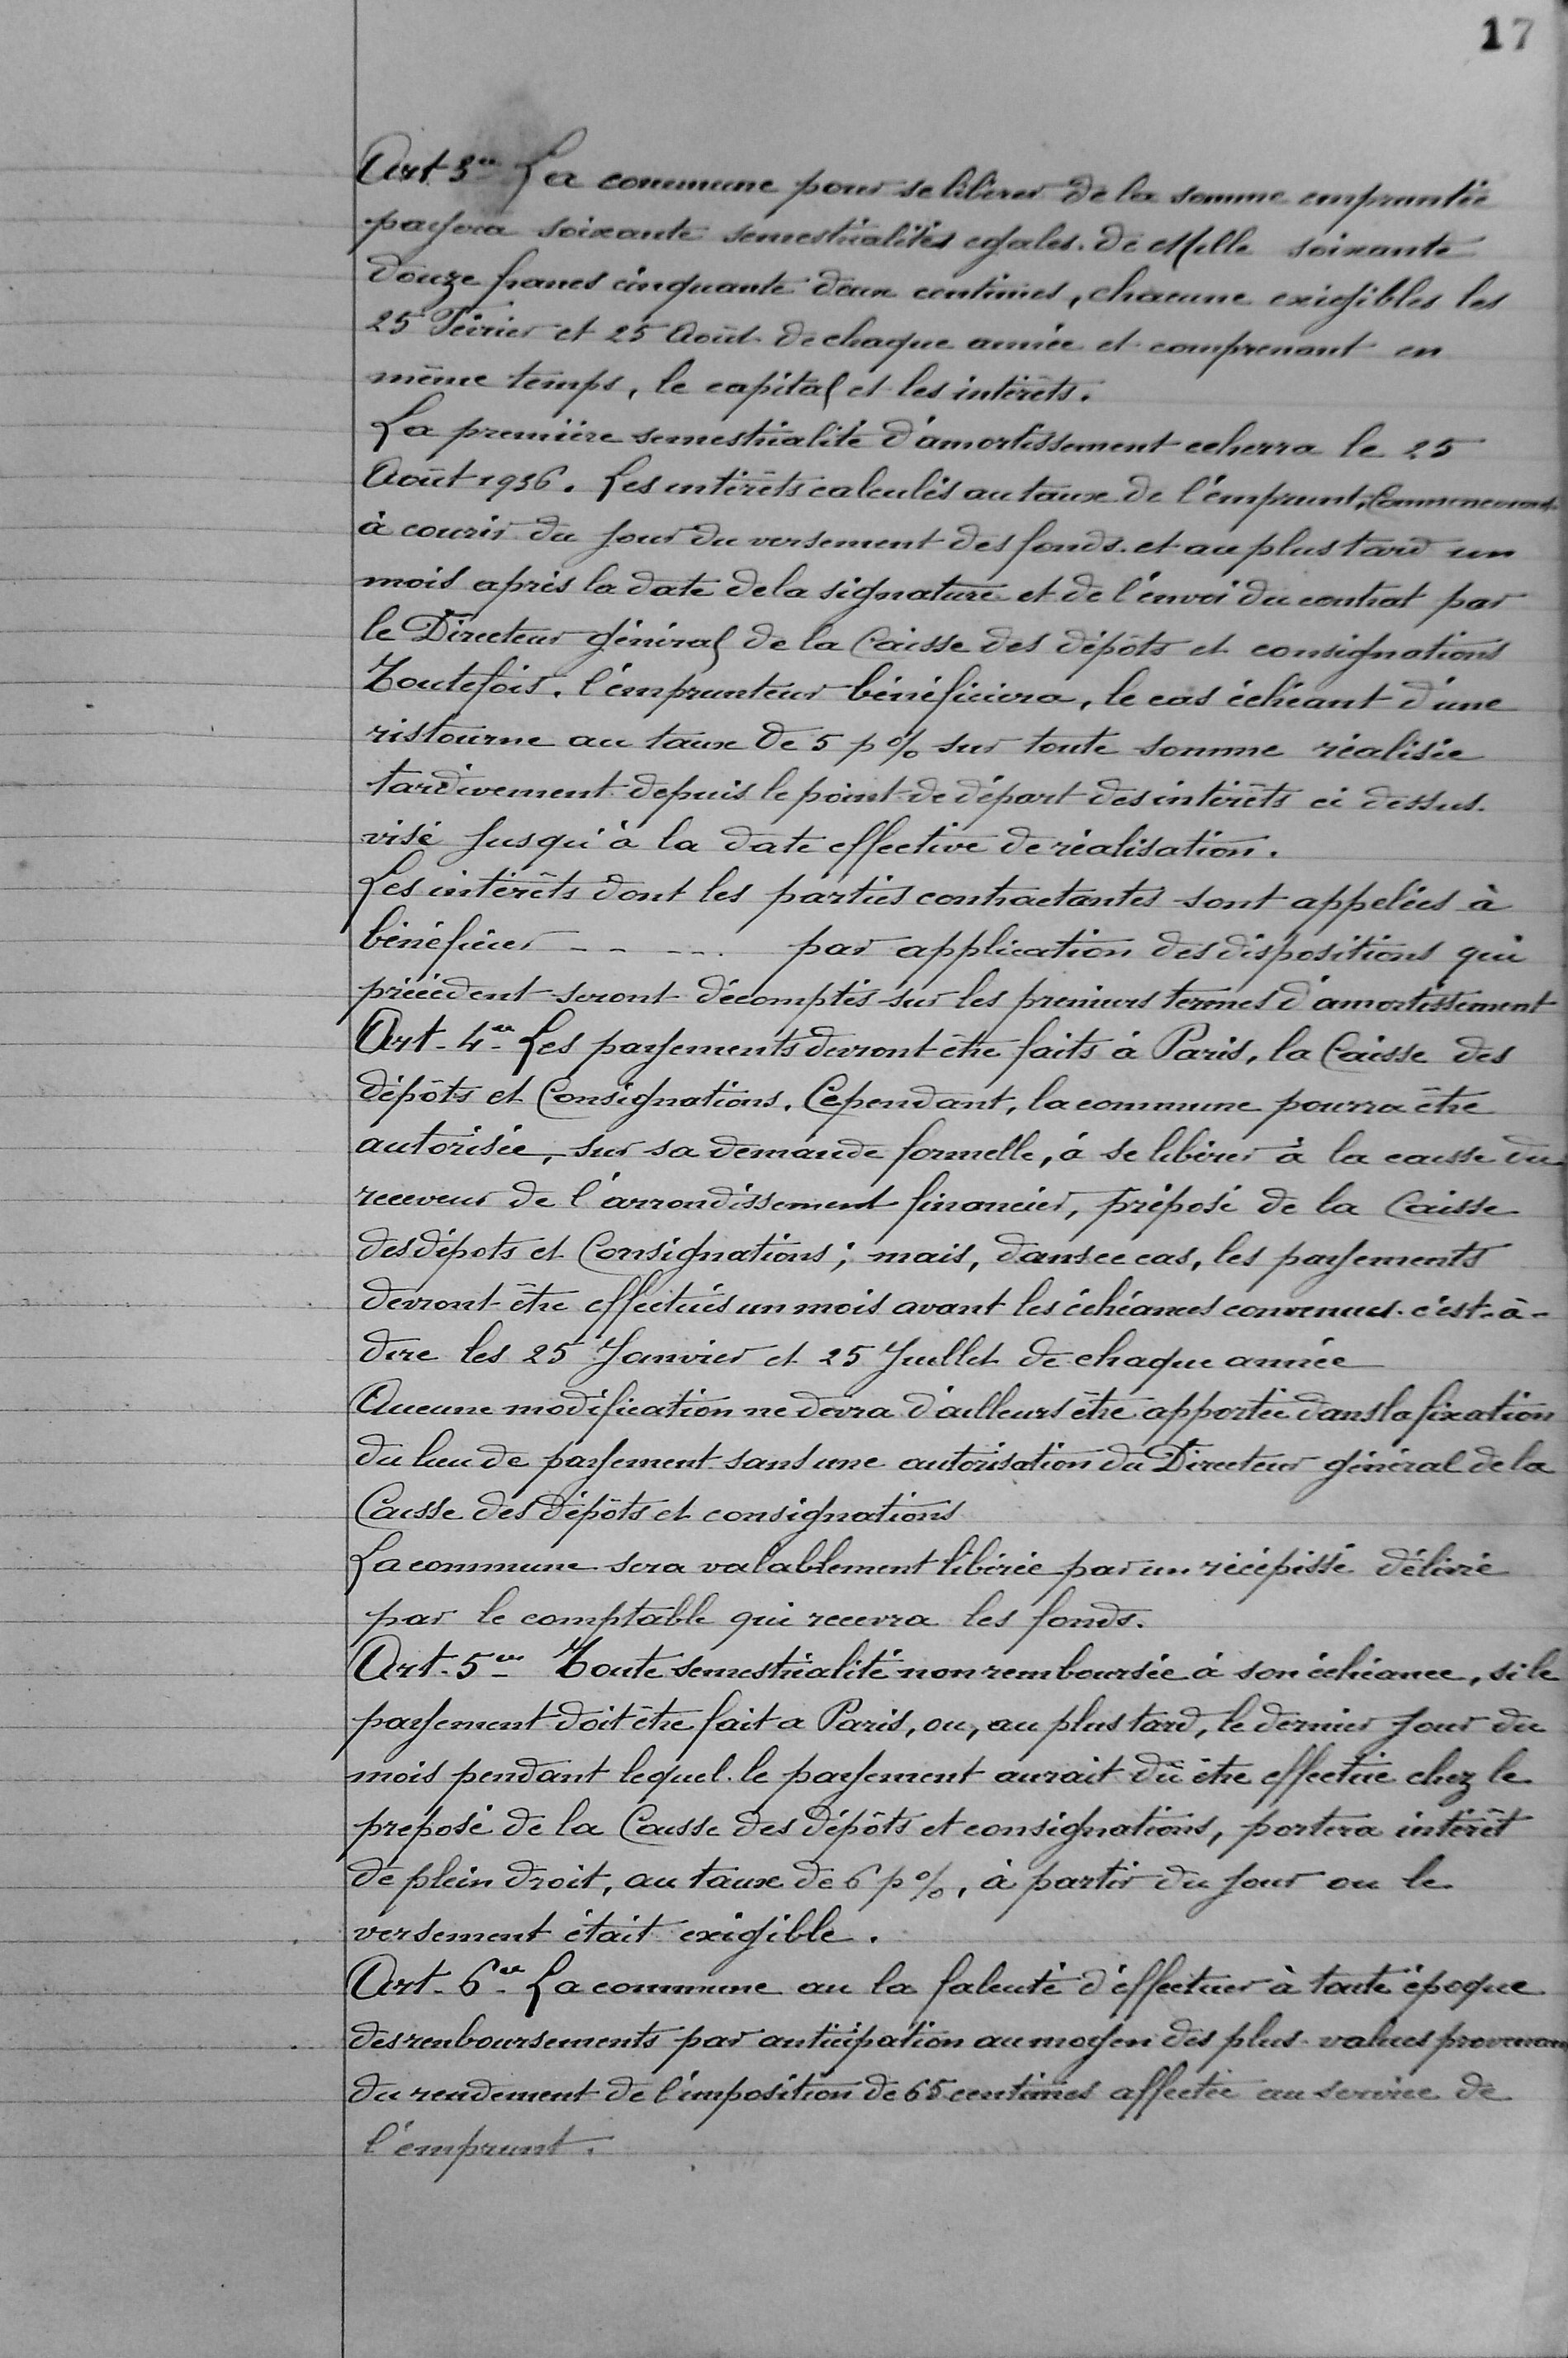 17
Art 3e La commune pour se libérer de la somme empruntée
payera soixante semestrialités egales de Mille soixante
douze francs cinquante deux centimes, chacune exigibles les
25 Février et 25 Août de chaque année et comprenant en
même temps, le capital et les intérêts.
La première semestrialité d'amortissement echerra le 25
Août 1936. Les intérêts calculés au taux de l'emprunt, Commenceront
à courir du jour du versement des fonds et au plus tard un
mois après la date de la signature et de l'envoi du contrat par
le Directeur général de la Caisse des dépôts et consignations
Toutefois, l'emprunteur bénéficiera, le cas échéant d'une
ristourne au taux de 5 p % sur toute somme réalisée
tardivement depuis le point de départ des intérêts ci dessus
visé jusqu'à la date effective de réalisation.
Les intérêts dont les parties contractantes sont appelées à
bénéficier - - - - - par application des dispositions qui
précédent seront décomptés sur les premiers termes d'amortissement
Art. 4e Les payements devront être faits à Paris, la Caisse des
dépôts et Consignations. Cependant, la commune pourra être
autorisée, sur sa demande formelle, à se libérer à la caisse du
receveur de l'arrondissement financier, préposé de la Caisse
des dépots et Consignations; mais, dans ce cas, les payements
devront être effectués un mois avant les échéances convenues c'est-à-
dire les 25 Janvier et 25 Juillet de chaque année
Aucune modification ne devra d'ailleurs être apportée dans la fixation
du lieu de payement sans une autorisation du Directeur général de la
Caisse des dépôts et consignations
La commune sera valablement libérée par un récépissé délivré
par le comptable qui recevra les fonds.
Art. 5e Toute semestrialité non remboursée à son échéance, si le
payement doit être fait a Paris, ou, au plus tard, le dernier jour du
mois pendant lequel le payement aurait dû être effectué chez le
preposé de la Caisse des dépôts et consignations, portera intérêt
de plein droit, au taux de 6 p %, à partir du jour ou le
versement était exigible.
Art. 6e La commune au la faleuté d'effectuer à toute époque
des renboursements par anticipation au moyen des plus values provenant
du rendement de l'imposition de 65 centimes affectée au service de
l'emprunt.